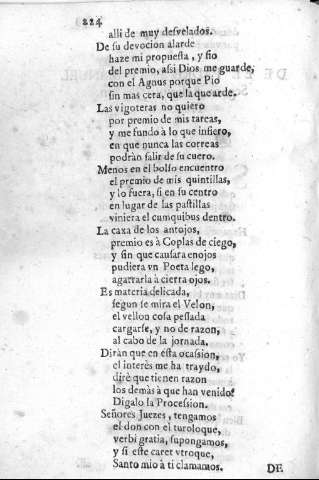 224
alli de muy desvelados.
De su devocion alarde
haze mi propuesta, y fio
del premio, assi Dios me guarde,
con el Agnus porque Pio
sin mas cera, que la que arde.
Las vigoteras no quiero
por premio de mis tareas,
y me fundo à lo que infiero,
en que nunca las correas
podràn salir de su cuero.
Menos en el bolso encuentro
el premio de mis quintillas,
y lo fuera, si en su centro
en lugar de las pastillas
viniera el cumquibus dentro.
La caxa de los antojos,
premio es à Coplas de ciego,
y sin que causara enojos
pudiera vn Poeta lego,
agarrarla à cierra ojos.
Es materia delicada,
segun se mira el Velon,
el vellon cosa pessada
cargarse, y no de razon,
al cabo de la jornada.
Diràn que en esta ocassion,
el interès me ha traydo,
dirè que tienen razon
los demàs à que han venido?
Digalo la Procession.
Señores Juezes, tengamos
el don con el turoloque,
verbi gratia, supongamos,
y si este caret vtroque,
Santo mio à ti clamamos.
DE